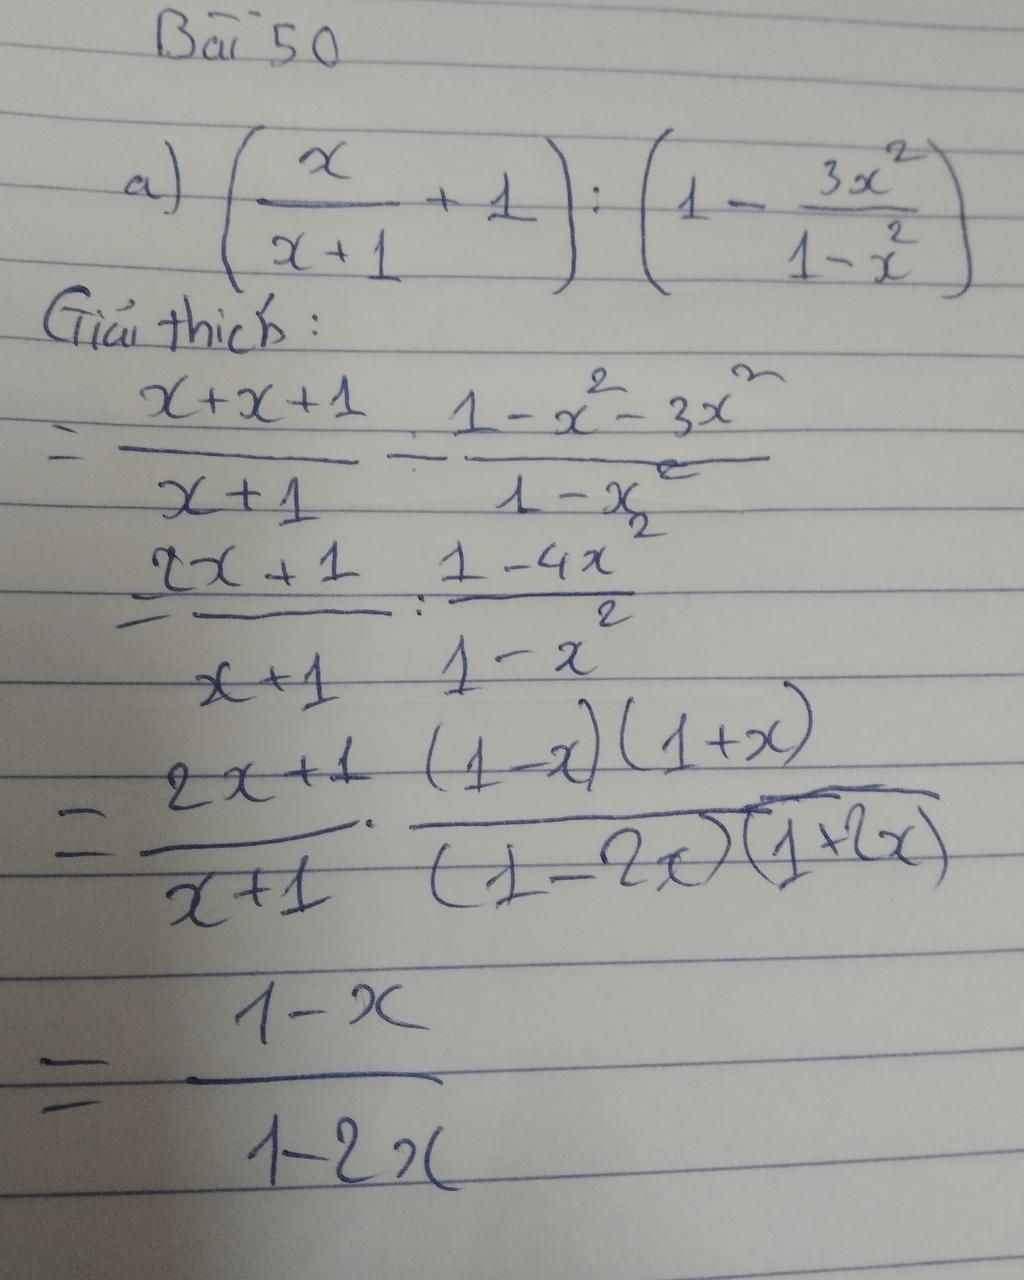 Bài 50
a) (x/(x+1) + 1) : (1 - 3x²/(1-x²))
Giải thích:
= (x+x+1)/(x+1) : (1-x²-3x²)/(1-x²)
= (2x+1)/(x+1) : (1-4x²)/(1-x²)
= (2x+1)/(x+1) . ((1-x)(1+x))/((1-2x)(1+2x))
= (1-x)/(1-2x)